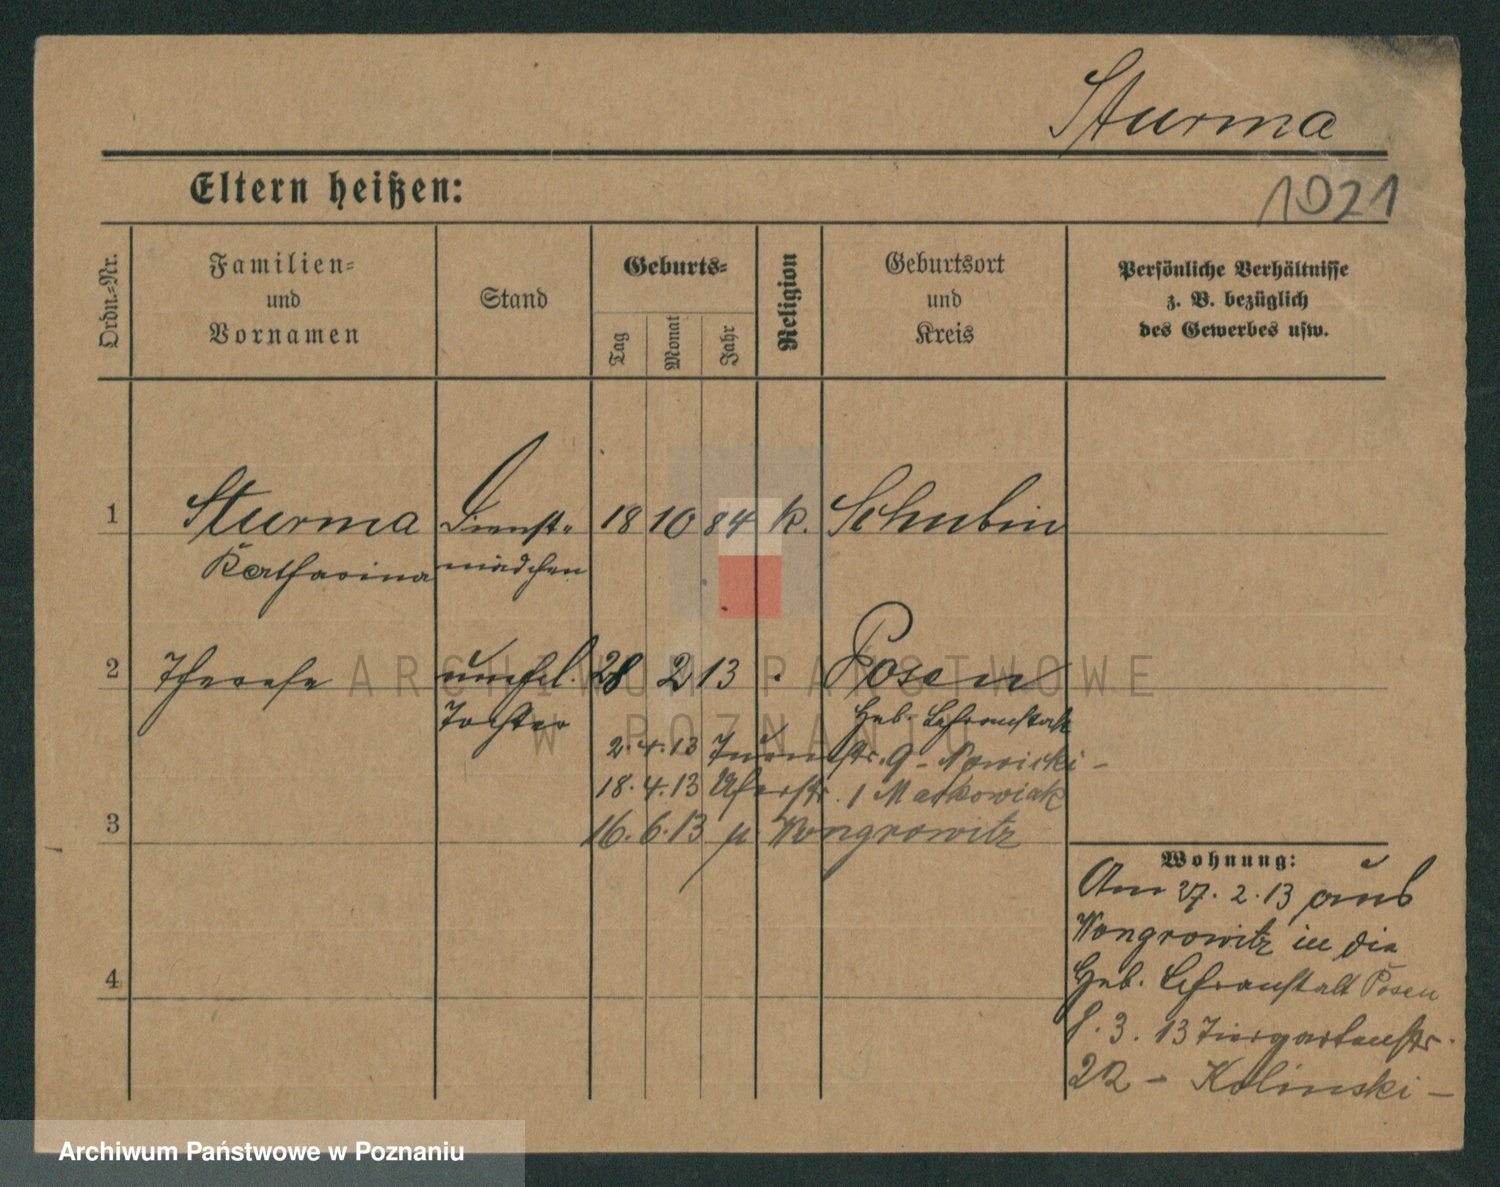 Sturma
Eltern heißen:
1921
Ordn.-Nr.
Familien-
und
Vornamen
Stand
Geburts-
Tag
Monat
Jahr
Religion
Geburtsort
und
Kreis
Persönliche Verhältnisse
z. B. bezüglich
des Gewerbes usw.
1 Sturma Dienst- 18 10 84 k. Schubin
Katharina mädchen
2 Therese unehel. 28 2 13 . Posen
Tochter Heb. Lehranstalt
2.4.13 Turmstr. 9 - Nowicki -
18.4.13 Uferstr. 1 Markowiak
3 16.6.13 n. Wongrowitz
Wohnung:
Am 27.2.13 aus
Wongrowitz in die
Heb. Lehranstalt Posen
8.3.13 Tiergartenstr.
22 - Kolinski -
4
ARCHIWUM PAŃSTWOWE
W POZNANIU
Archiwum Państwowe w Poznaniu